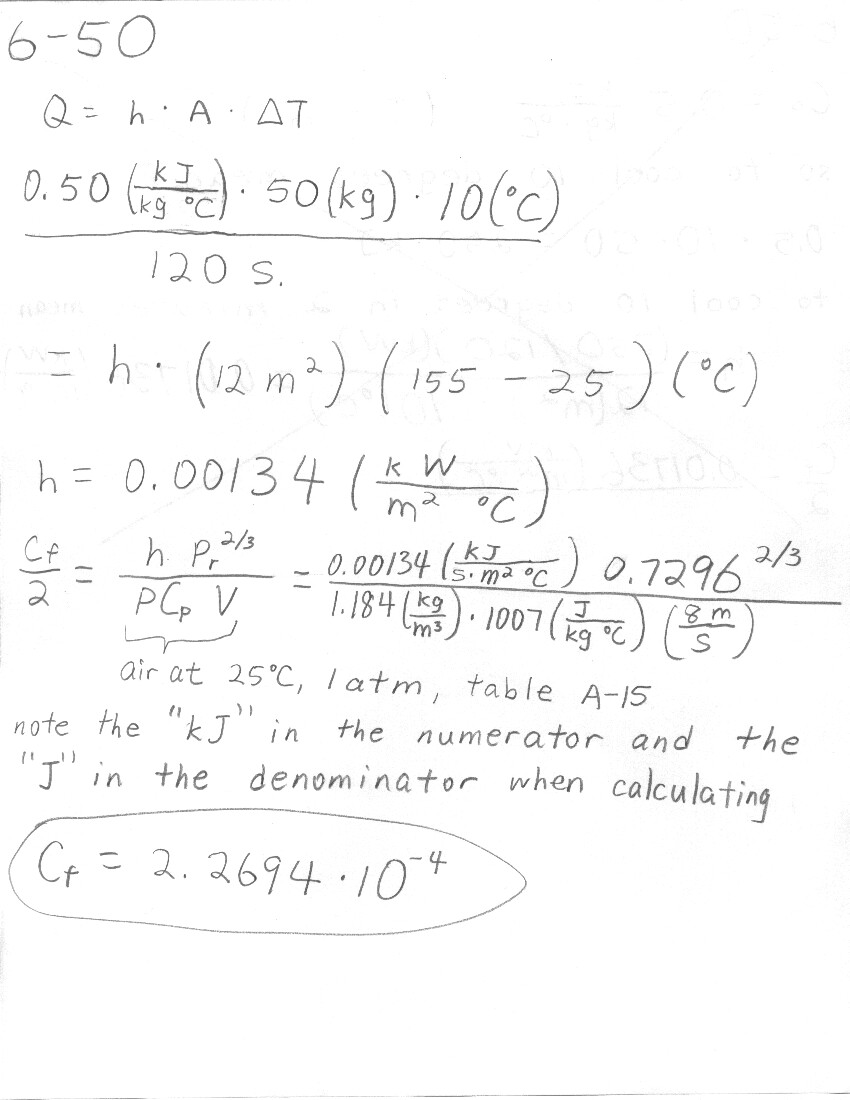 6-50
Q = h · A · ΔT
0.50 (kJ/kg °C) · 50 (kg) · 10 (°C)
120 s.
= h · (12 m²) (155 - 25) (°C)
h = 0.00134 (kW/m² °C)
Cf/2 = h Pr^2/3 / ρCp V = 0.00134 (kJ/s·m² °C) 0.7296^2/3 / 1.184 (kg/m³) · 1007 (J/kg °C) (8 m/s)
air at 25°C, 1 atm, table A-15
note the "kJ" in the numerator and the
"J" in the denominator when calculating
Cf = 2.2694 · 10^-4